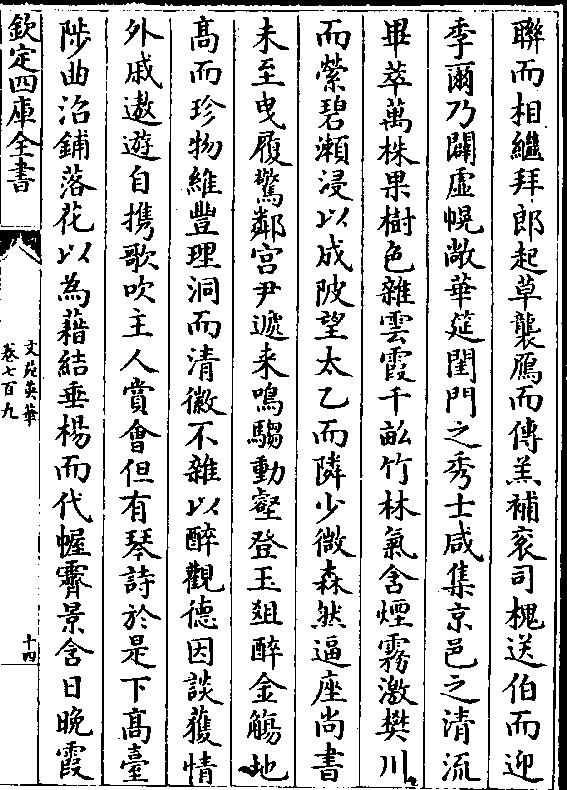 聨而相繼拜郎起草襲鴈而傳羔補衮司槐送伯而迎
季爾乃闢虛幌敞華筵閨門之秀士咸集京邑之清流
畢萃萬株果樹色雜雲霞千畝竹林氣含煙霧激樊川
而縈碧瀬浸以成陂望太乙而隣少微森然逼座尚書
未至曳履驚鄰宫尹遞来鳴騶動壑登玉俎醉金觴地
髙而珍物維豐理洞而清徽不雜以醉觀德因談獲情
外戚遨遊自携歌吹主人賞會但有琴詩於是下髙臺
陟曲沼鋪落花以為藉結垂楊而代幄霽景含日晩霞
欽定四庫全書
文苑英華
卷七百九
十四